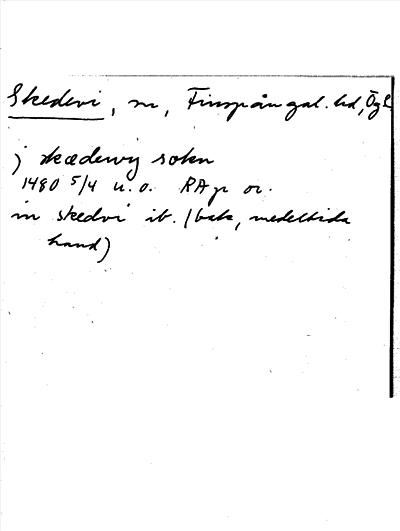 Skedevi, sn, Finspångal. hd, Ög l.
j skædewy sokn
1480 5/4 u.o. RAp or.
in skedvi ib. (baks, medeltida
hand)